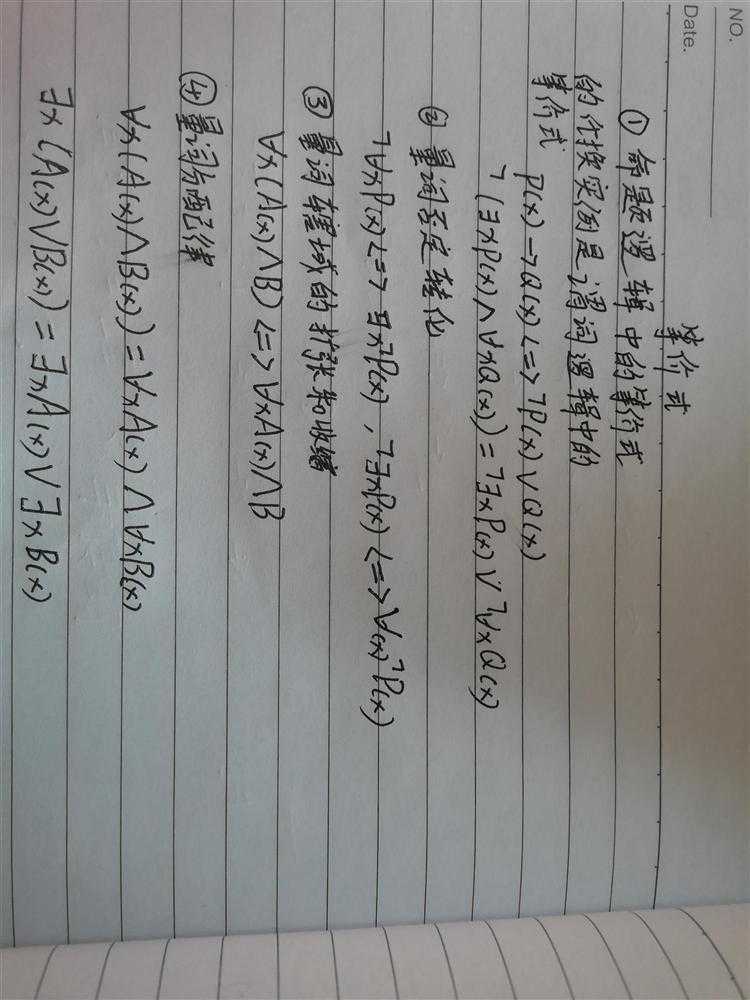 NO.
Date.
等价式
① 命题逻辑中的等价式
的代换实例是谓词逻辑中的
等价式
P(x)→Q(x)<=>¬P(x)∨Q(x)
¬(∃xP(x)∧∀xQ(x))=¬∃xP(x)∨¬∀xQ(x)
② 量词否定转化
¬∀xP(x)<=>∃x¬P(x),¬∃xP(x)<=>∀(x)¬P(x)
③ 量词辖域的扩张和收缩
∀x(A(x)∧B)<=>∀xA(x)∧B
④ 量词分配律
∀x(A(x)∧B(x))=∀xA(x)∧∀xB(x)
∃x(A(x)∨B(x))=∃xA(x)∨∃xB(x)